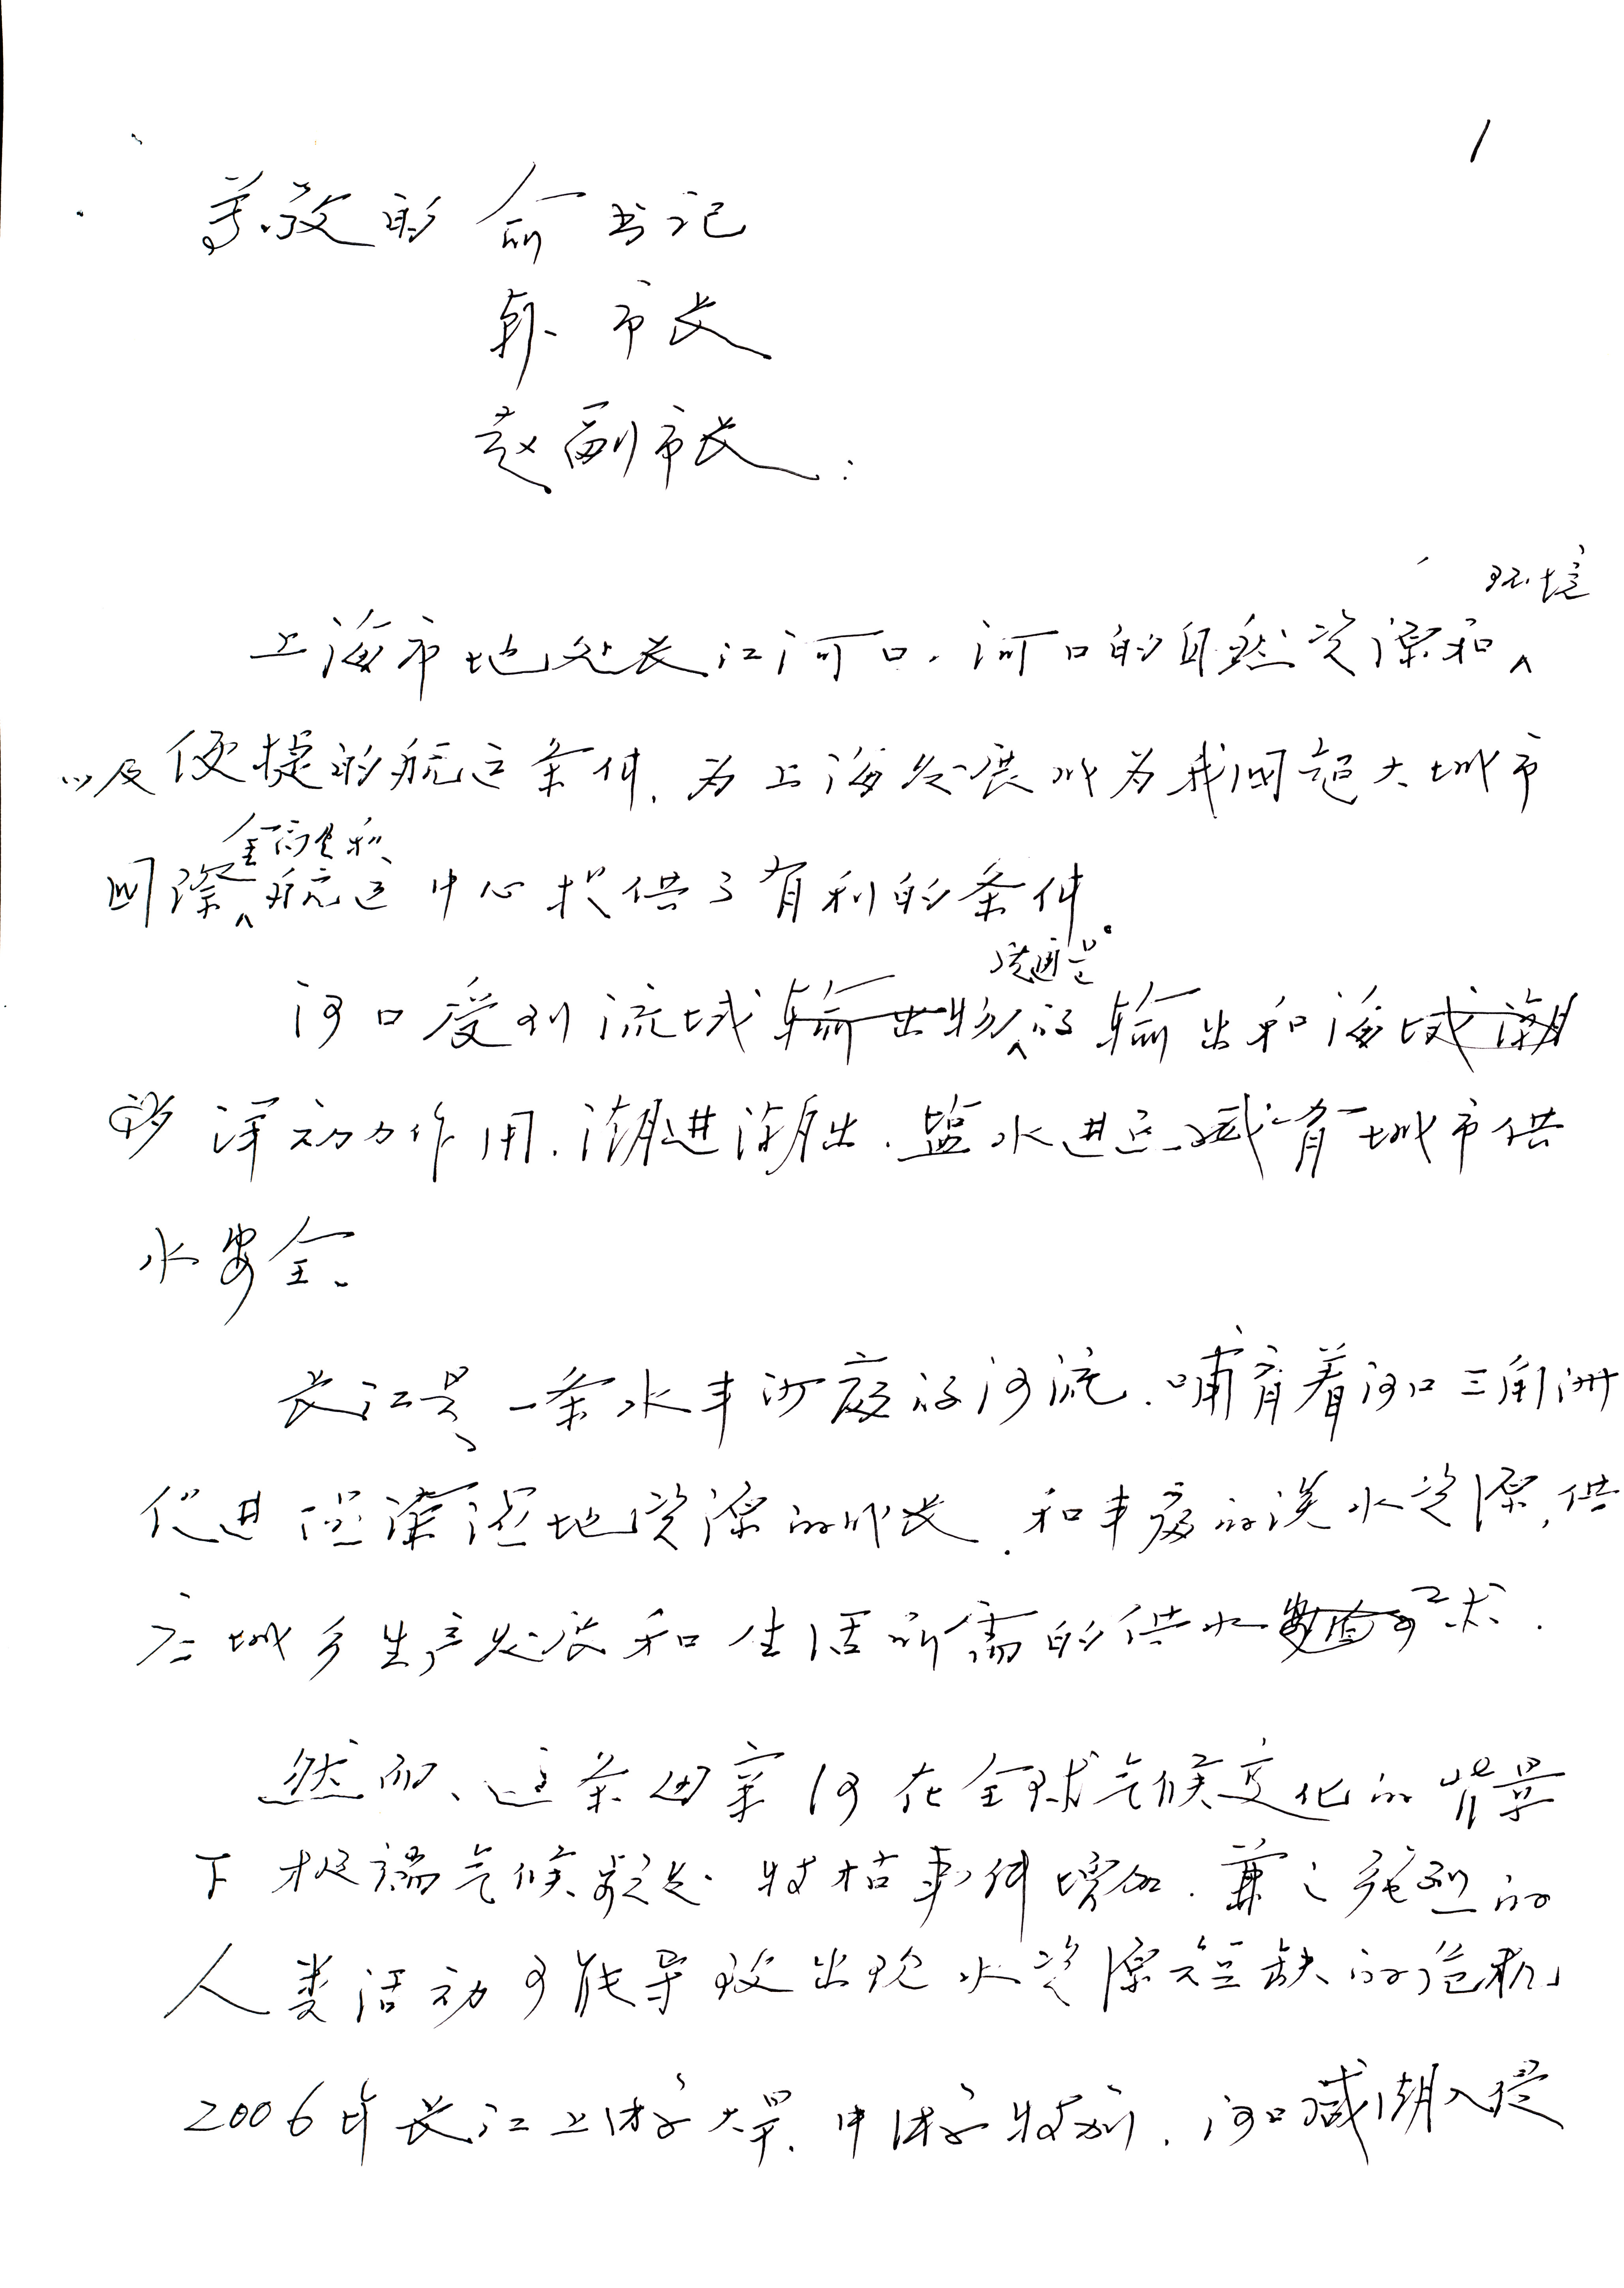 1
尊敬的俞书记
韩市长
赵副市长：
上海市地处长江河口，河口的自然资源和环境
以及便捷的航运条件，为上海发展成为我国超大城市
国际金融贸易和航运中心提供了有利的条件。
河口受到流域输出物通量的输出和海域潮
的洋动力作用，潮进潮出，盐水进退，威胁城市供
水安全。
长江是一条水丰沙富的河流，哺育着河口三角洲
促进滩涂湿地资源的成长，和丰富的淡水资源，供
应城乡生产发展和生活所需的供水需求．
然而、这条母亲河在全球气候变化的背景
下极端气候频发，特枯事件增加，兼之强烈的
人类活动可能导致出现水资源短缺的危机」
2006年长江上游大旱，中游特枯，河口咸潮入侵